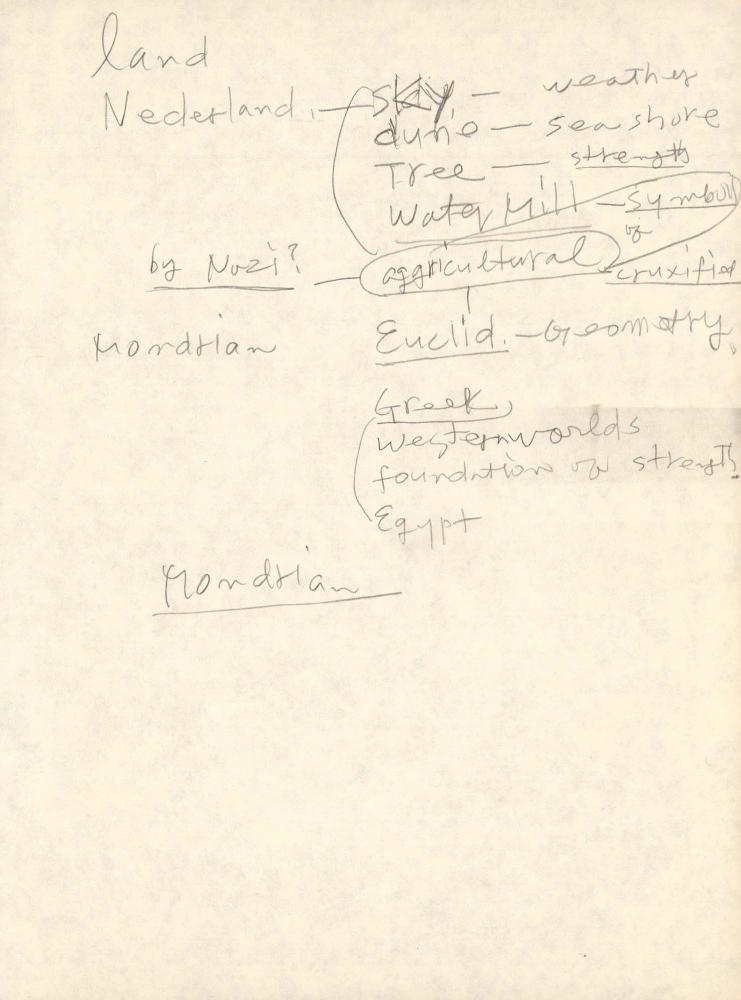 land
Nederland. — sky — weather
dune — sea shore
Tree — strength
Water Mill — symbol
of
by Nozi? — aggricultural — cruxified
Mondrian Euclid. — Geometry.
Greek,
Westernworlds
foundation of strength.
Egypt
Mondrian